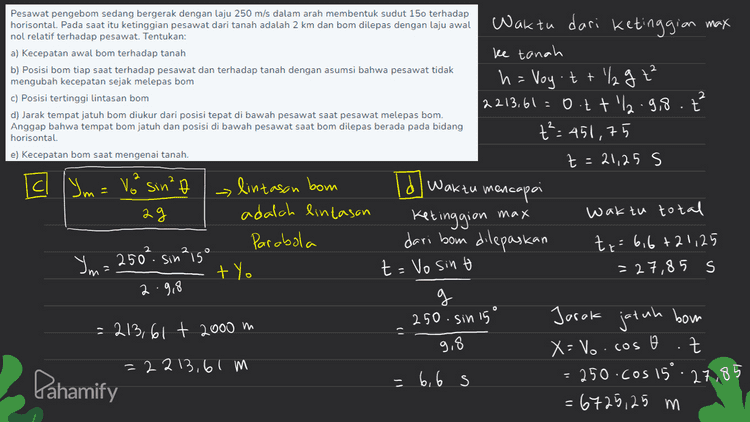 Pesawat pengebom sedang bergerak dengan laju 250 m/s dalam arah membentuk sudut 15o terhadap
horisontal. Pada saat itu ketinggian pesawat dari tanah adalah 2 km dan bom dilepas dengan laju awal
nol relatif terhadap pesawat. Tentukan:
a) Kecepatan awal bom terhadap tanah
b) Posisi bom tiap saat terhadap pesawat dan terhadap tanah dengan asumsi bahwa pesawat tidak
mengubah kecepatan sejak melepas bom
c) Posisi tertinggi lintasan bom
d) Jarak tempat jatuh bom diukur dari posisi tepat di bawah pesawat saat pesawat melepas bom.
Anggap bahwa tempat bom jatuh dan posisi di bawah pesawat saat bom dilepas berada pada bidang
horisontal.
e) Kecepatan bom saat mengenai tanah.
c
Ym = Vo² sin² θ
2g
→ lintasan bom
adalah lintasan
Parabola
Ym = 250² . sin² 15° + Yo
2 . 9,8
= 213,61 + 2000 m
= 2213,61 m
d Waktu mencapai
ketinggian max
dari bom dilepaskan
t = Vo sin θ
g
= 250 . sin 15°
9,8
= 6,6 s
Waktu dari ketinggian max
ke tanah
h = Voy . t + 1/2 g t²
2213,61 = 0 . t + 1/2 . 9,8 . t²
t² = 451,75
t = 21,25 s
waktu total
tt = 6,6 + 21,25
= 27,85 s
Jarak jatuh bom
X = Vo . cos θ . t
= 250 . cos 15° . 27,85
= 6725,25 m
Pahamify